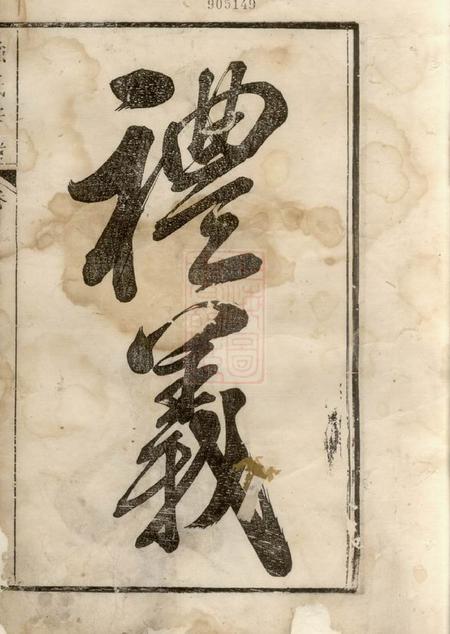 905149
禮義